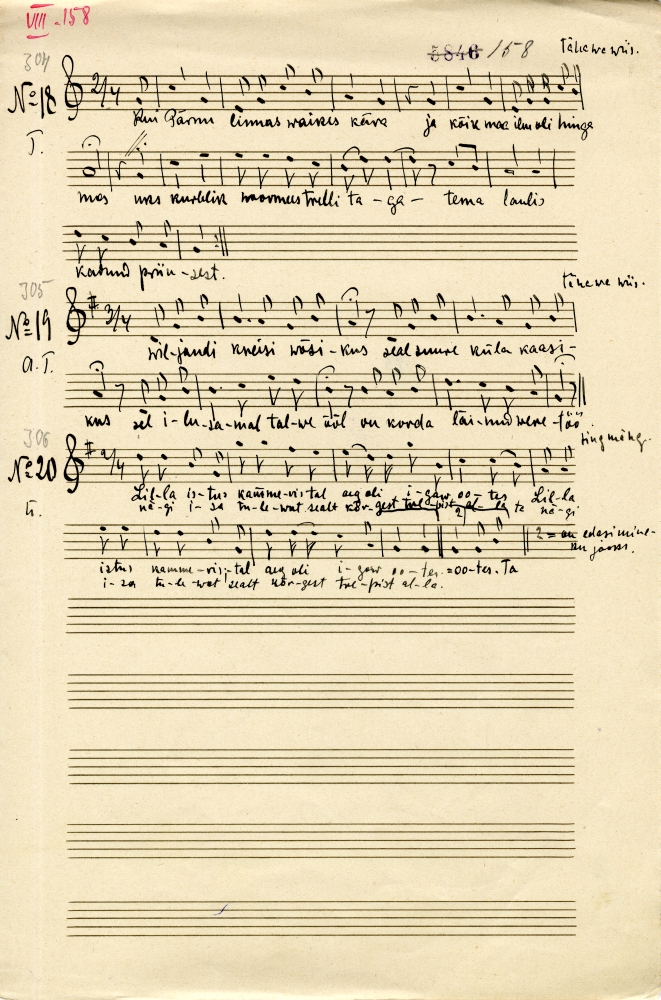 VIII - 158
5846 /158
304
Tähewe wiis.
№ 18 2/4
Kui Pärnu linnas waikis kära ja kõik maa ilm oli hinge
T.
mas uks kurblik noormees trelli ta - ga - tema laulis
kadund priiu - sest.
305
Tähewe wiis.
№ 19 3/4
Wil-jandi kreisi wösi - kus seal suure küla kaasi -
A.T.
kus sel i - lu-sa-mal tal-we ööl on korda läi-nud were-töö
306
ringmäng.
№ 20 2/4
Lil-la is-tus kamme-ris tal aeg oli i-gaw oo-tes Lil-la
nä-gi i-sa tu-le-wat sealt kõr-gest tre-pist al-la ta nä-gi
2 = on edasi mine-
istus kamme-ris-tal aeg oli i-gaw oo-tes. = oo-tes. Ta
i-sa tu-le-wat sealt kõr-gest tre-pist al-la.